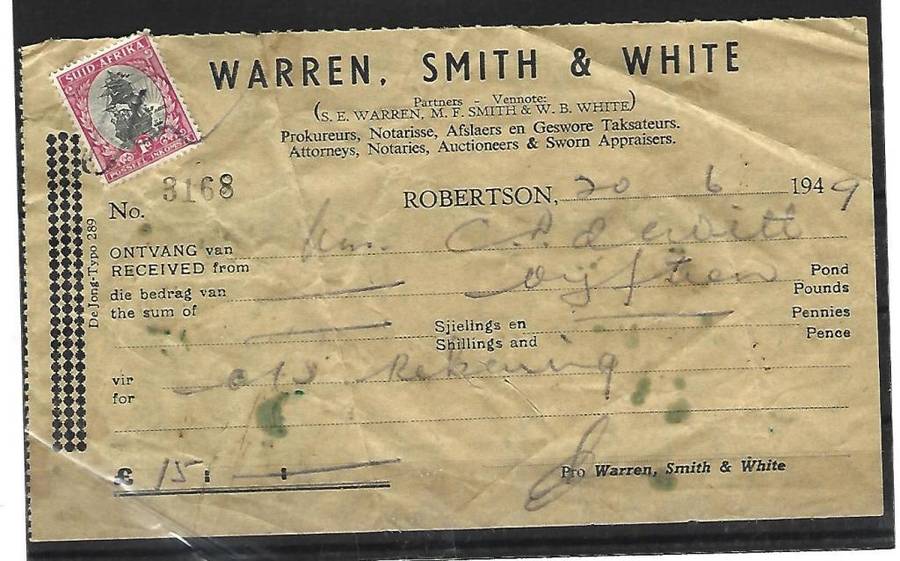 SUID AFRIKA
1D
POSSEËL INKOMSTE
WARREN, SMITH & WHITE
Partners - Vennote:
(S. E. WARREN, M. F. SMITH & W. B. WHITE)
Prokureurs, Notarisse, Afslaers en Geswore Taksateurs.
Attorneys, Notaries, Auctioneers & Sworn Appraisers.
No. 3168
ROBERTSON, 20 6 1949
De Jong-Typo 289
ONTVANG van
RECEIVED from
C. P. de Witt
die bedrag van
the sum of
Vyftien
Pond
Pounds
Sjielings en
Shillings and
Pennies
Pence
vir
for
o/s Rekening
£ 15 : :
Pro Warren, Smith & White